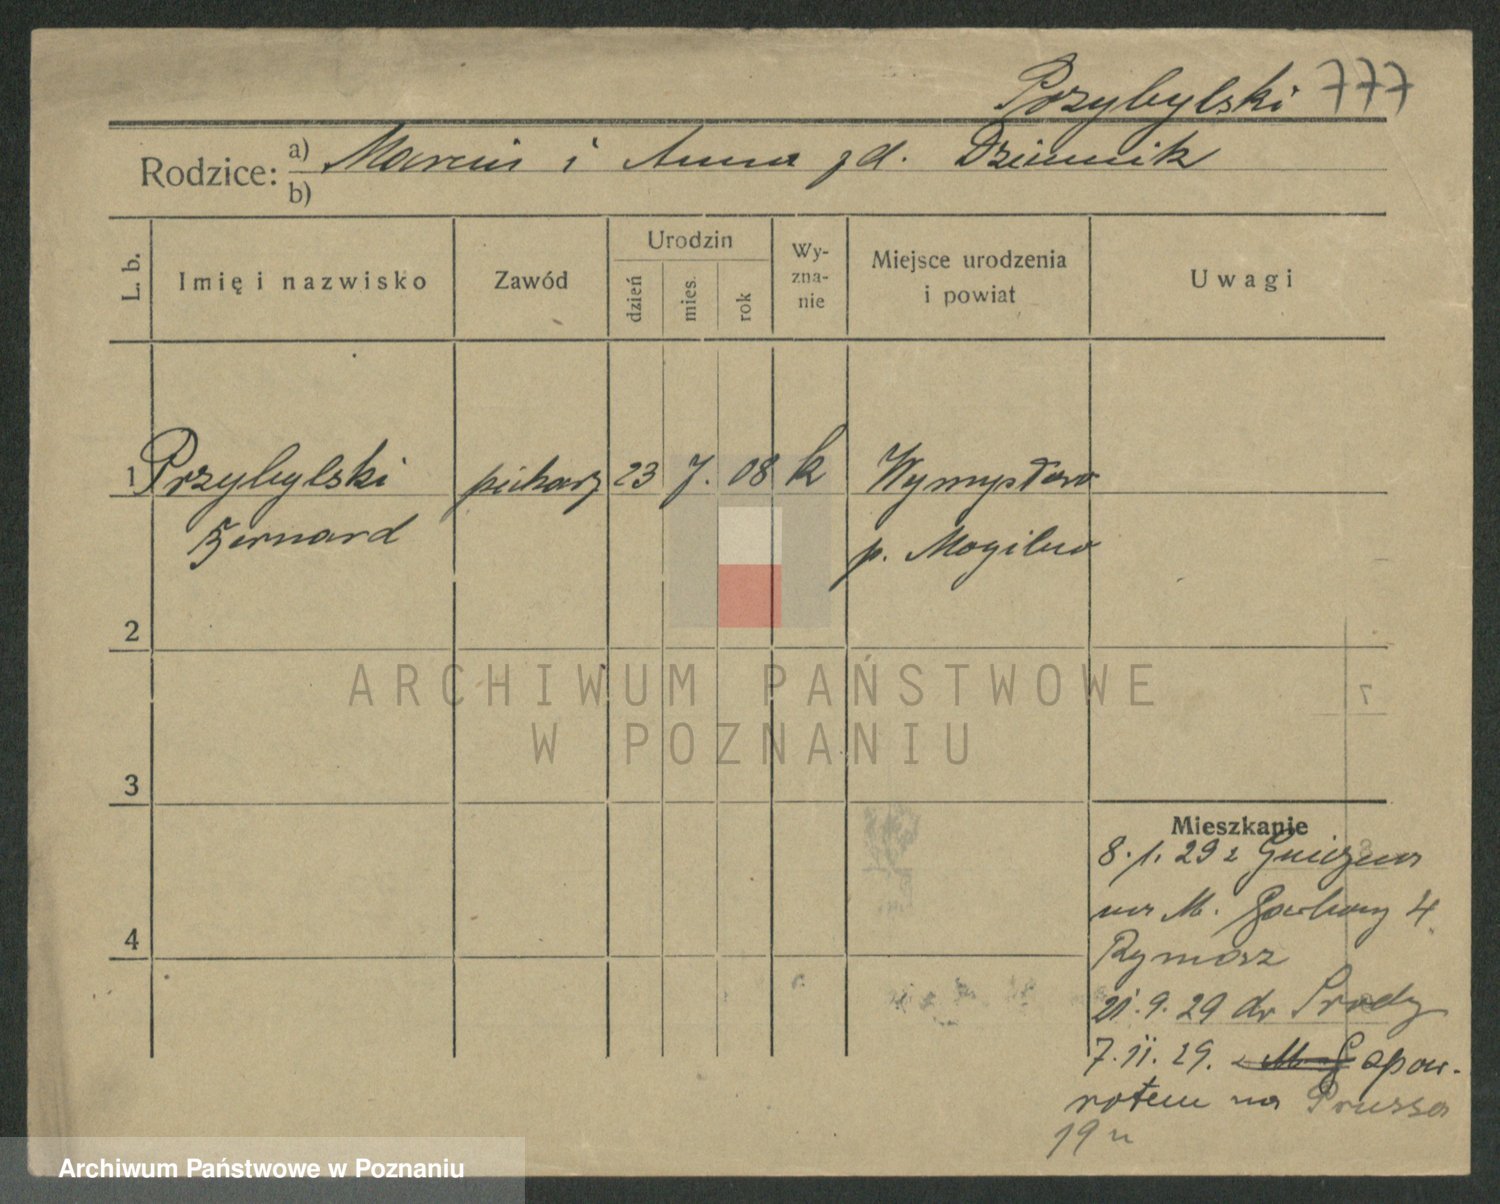 Przybylski 777
Rodzice: a) Marcin i Anna zd. Dziennik
b)
L. b.
Imię i nazwisko
Zawód
Urodzin
dzień
mies.
rok
Wy-
zna-
nie
Miejsce urodzenia
i powiat
Uwagi
1 Przybylski piekarz 23 7. 08 k Wymysłowo
Bernard p. Mogilno
2
3
4
Mieszkanie
8.1.29 z Gniezna
na M. Garbary 4
Rymarz
21.9.29 do Środy
7.11.29. z M. G spow-
rotem na Prusa
19
ARCHIWUM PAŃSTWOWE
W POZNANIU
Archiwum Państwowe w Poznaniu